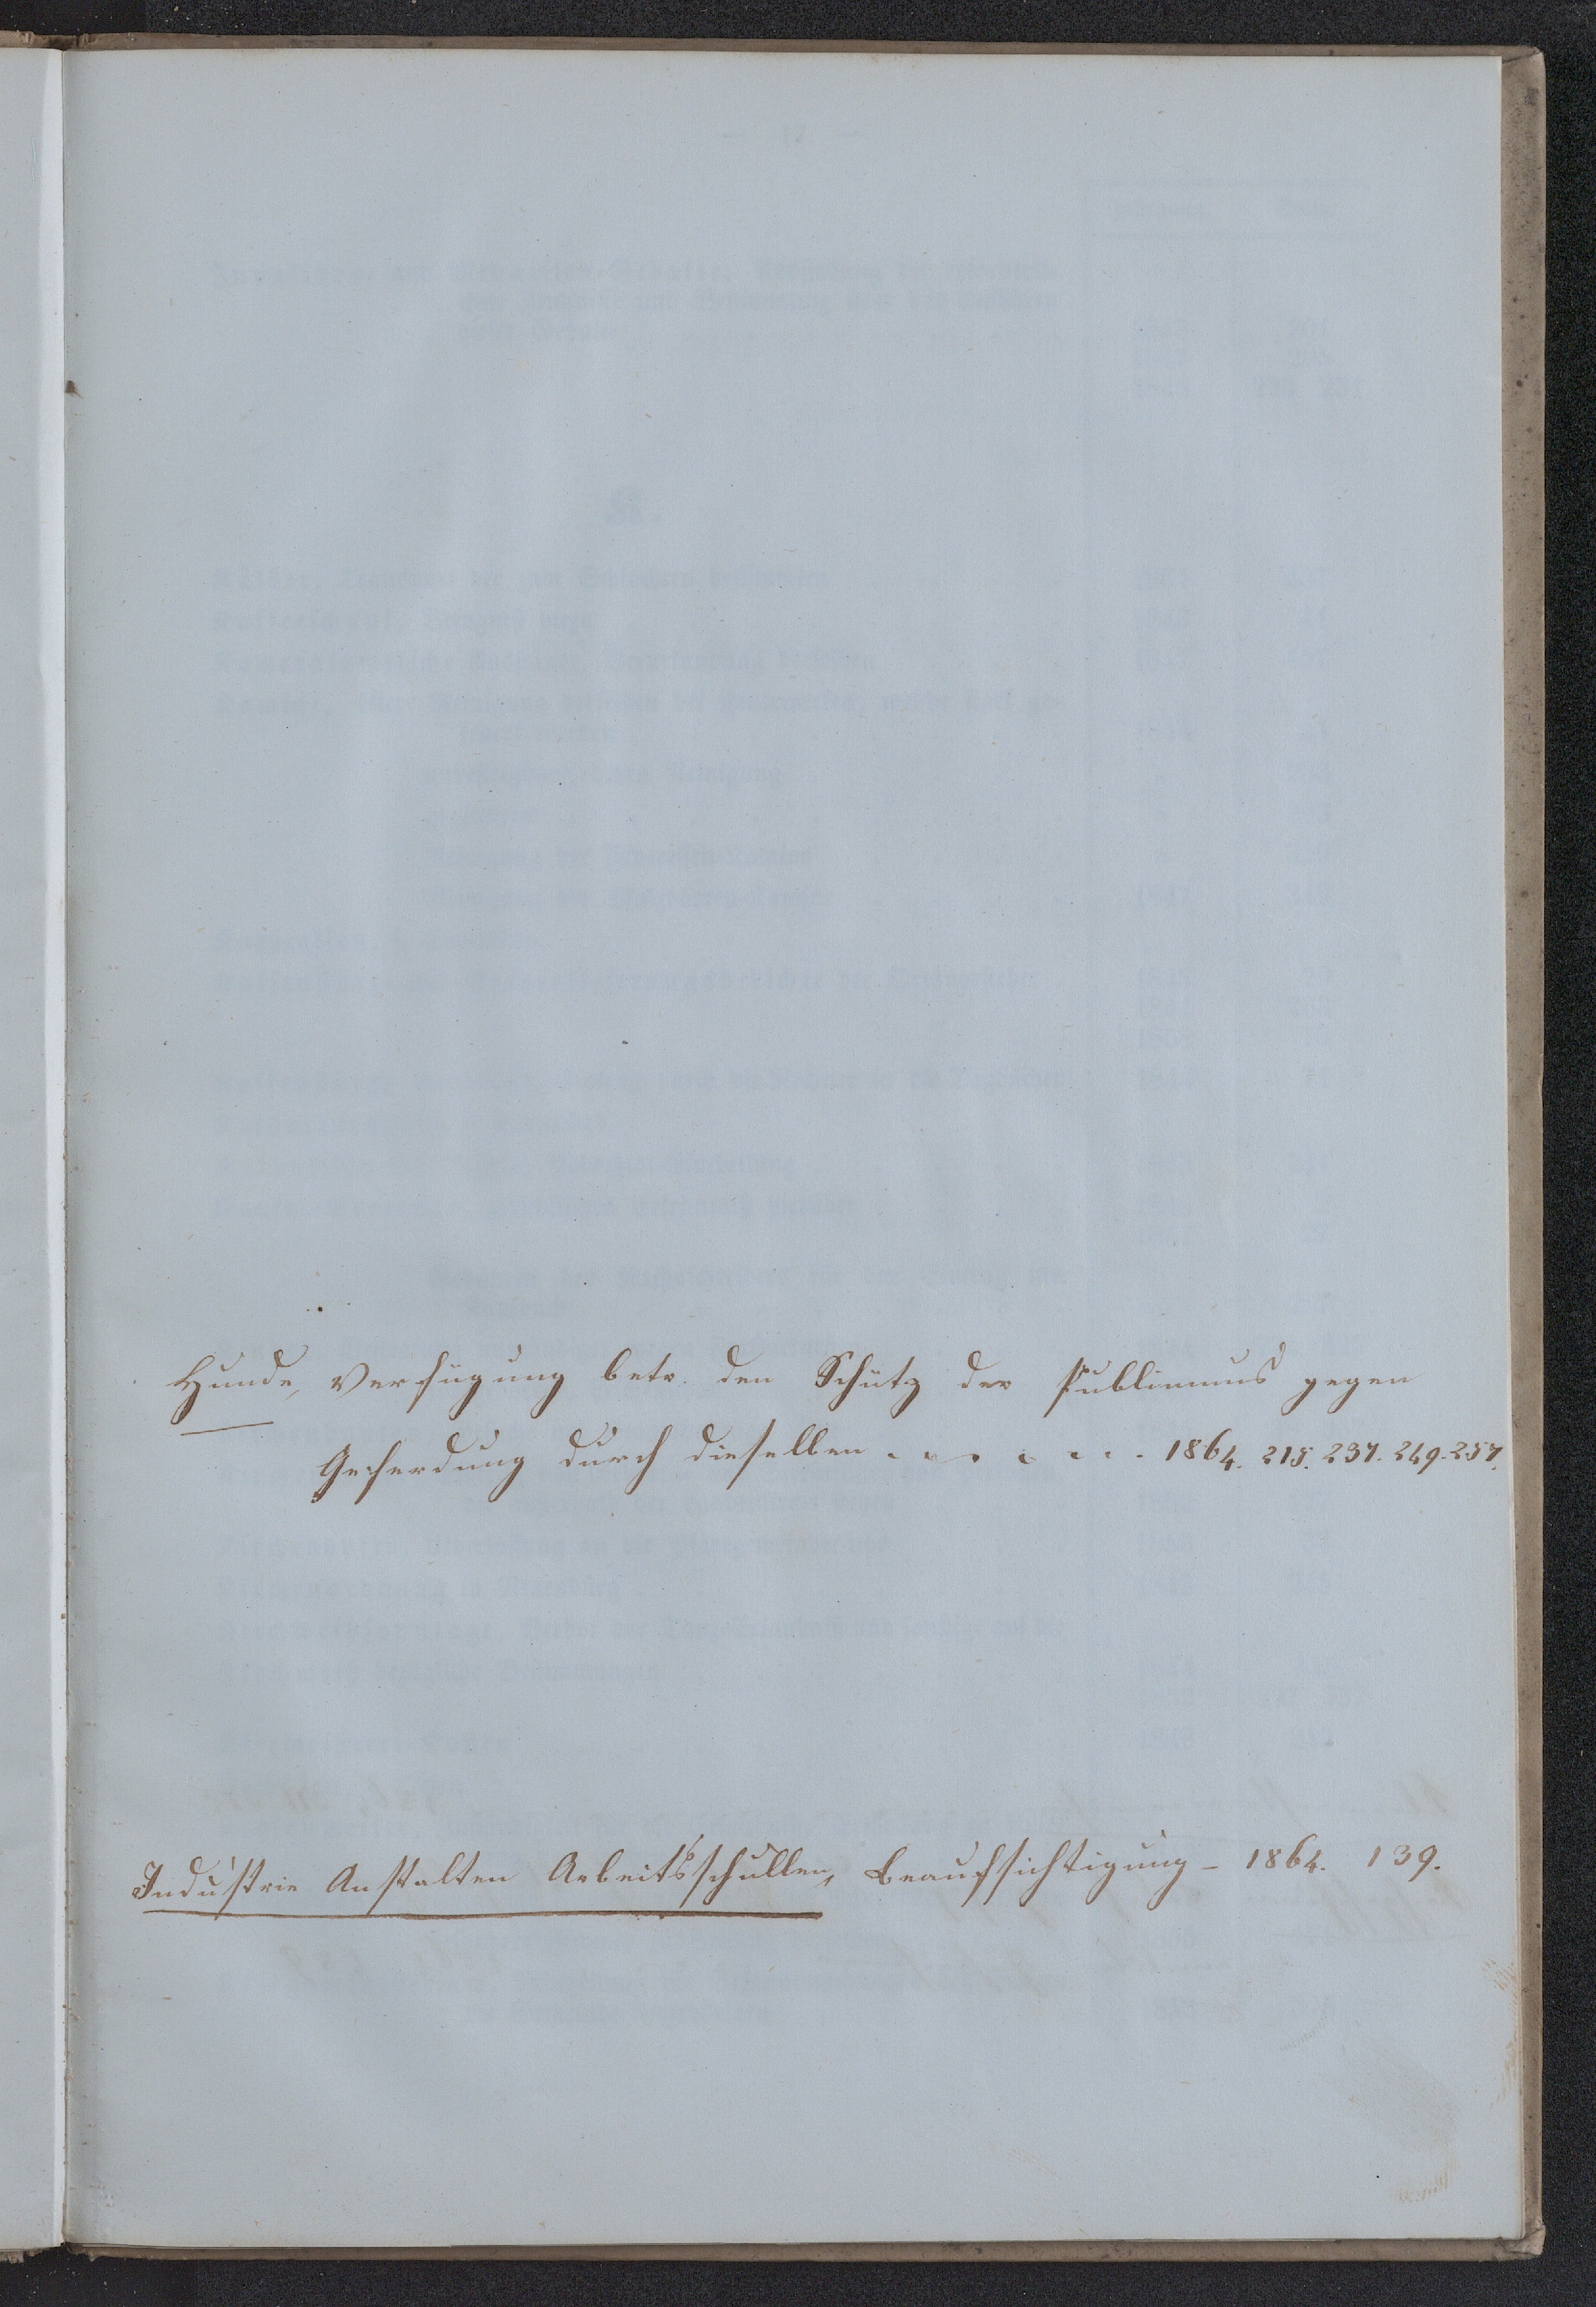 Hunde, Verfügung betr. den Schutz der Publimums gegen
Geferdung durch dieselben . . . . . . . 1864. 215. 237. 249. 257.
Industrie Anstalten Arbeitsschullen, Beaufsichtigung – 1864. 139.